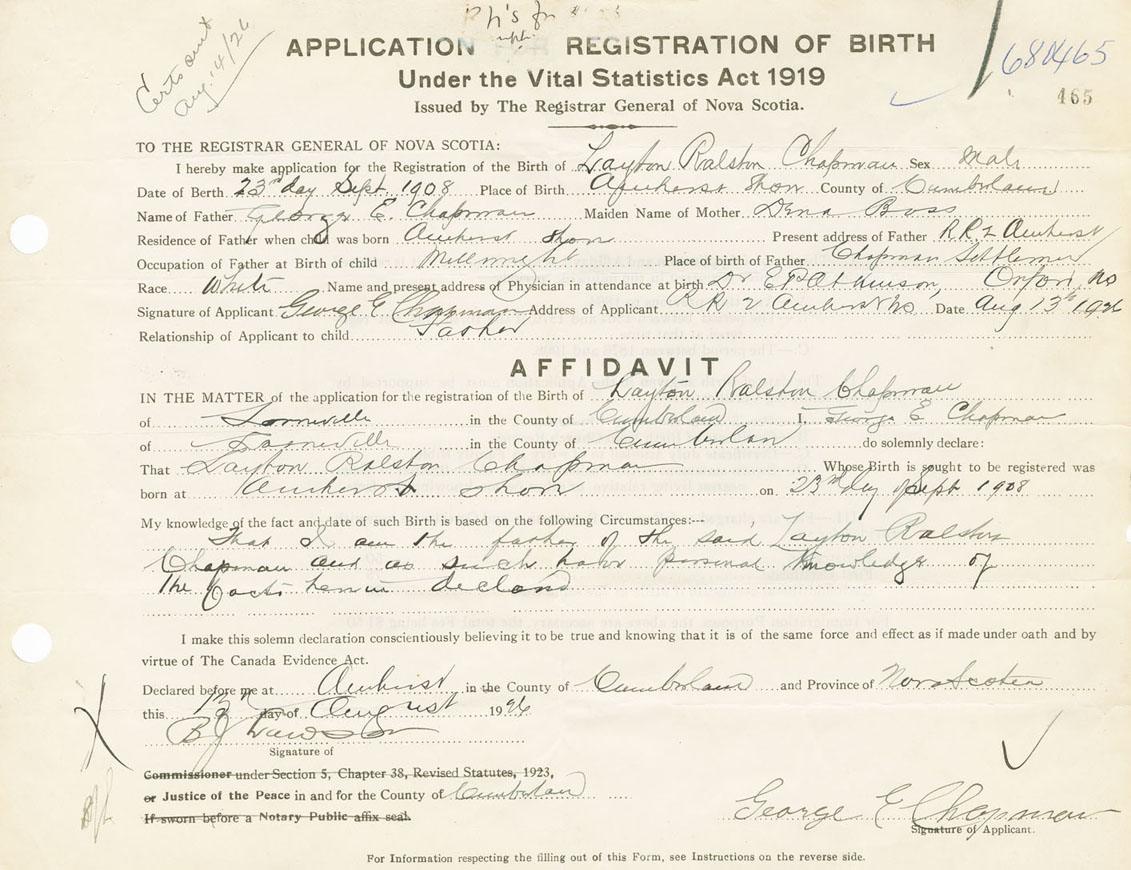 Certs sent
Aug. 14/26
680465
465
APPLICATION FOR REGISTRATION OF BIRTH
Under the Vital Statistics Act 1919
Issued by The Registrar General of Nova Scotia.
TO THE REGISTRAR GENERAL OF NOVA SCOTIA:
I hereby make application for the Registration of the Birth of Layton Ralston Chapman Sex Male
Date of Berth 23rd day Sept. 1908 Place of Birth Amherst Shore County of Cumberland
Name of Father George E. Chapman Maiden Name of Mother Dena Boss
Residence of Father when child was born Amherst Shore Present address of Father R.R.2 Amherst
Occupation of Father at Birth of child Millwright Place of birth of Father Chapman Settlement
Race White Name and present address of Physician in attendance at birth Dr E P Atkinson, Oxford, NS
Signature of Applicant George E Chapman Address of Applicant R.R 2 Amherst NS Date Aug 13th 1926
Relationship of Applicant to child Father
AFFIDAVIT
IN THE MATTER of the application for the registration of the Birth of Layton Ralston Chapman
of Lorneville in the County of Cumberland I, George E Chapman
of Lorneville in the County of Cumberland do solemnly declare:
That Layton Ralston Chapman Whose Birth is sought to be registered was
born at Amherst Shore on 23rd day of Sept 1908
My knowledge of the fact and date of such Birth is based on the following Circumstances:---
That I am the father of the said Layton Ralston
Chapman and as such have personal knowledge of
the facts herein declared
I make this solemn declaration conscientiously believing it to be true and knowing that it is of the same force and effect as if made under oath and by
virtue of The Canada Evidence Act.
Declared before me at Amherst in the County of Cumberland and Province of Nova Scotia
this 13th day of August 1926
Signature of
Commissioner under Section 5, Chapter 38, Revised Statutes, 1923,
or Justice of the Peace in and for the County of Cumberland
If sworn before a Notary Public affix seal.
George E Chapman
Signature of Applicant.
For Information respecting the filling out of this Form, see Instructions on the reverse side.